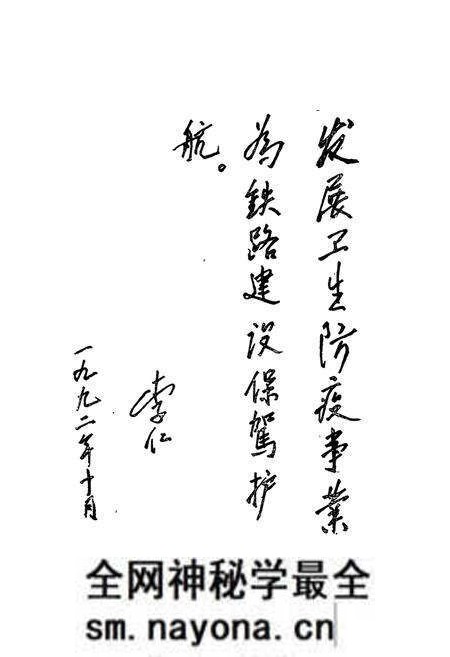 发展卫生防疫事业
为铁路建设保驾护
航。
李仁
一九九二年十月
全网神秘学最全
sm.nayona.cn